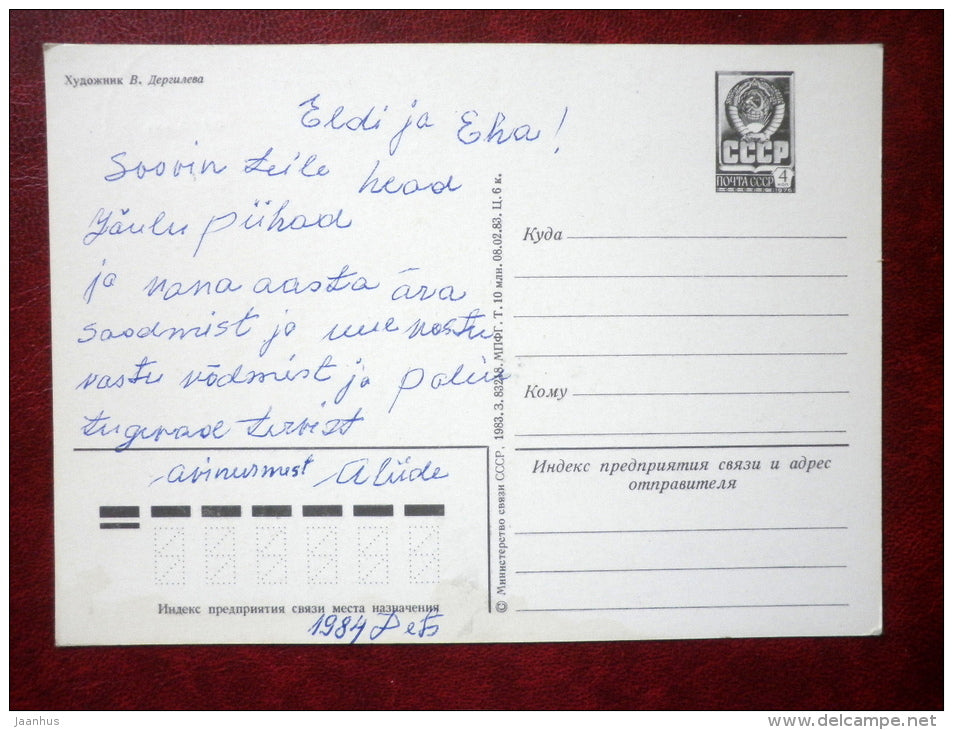 Художник В. Дергилева
Eldi ja Eha!
Soovin teile head
Jõulu pühad
ja vana aasta ära
saadmist ja uue aasta
vastu võdmist ja palju
tugevade tervist
avinurmest Aliide
1984 Dets
СССР
ПОЧТА СССР 4 коп
1976
Куда
Кому
Индекс предприятия связи и адрес
отправителя
Индекс предприятия связи места назначения
© Министерство связи СССР, 1983. З. 83248. МПФГ. Т. 10 млн. 08.02.83. Ц. 6 к.
Jaanhus
www.delcampe.net